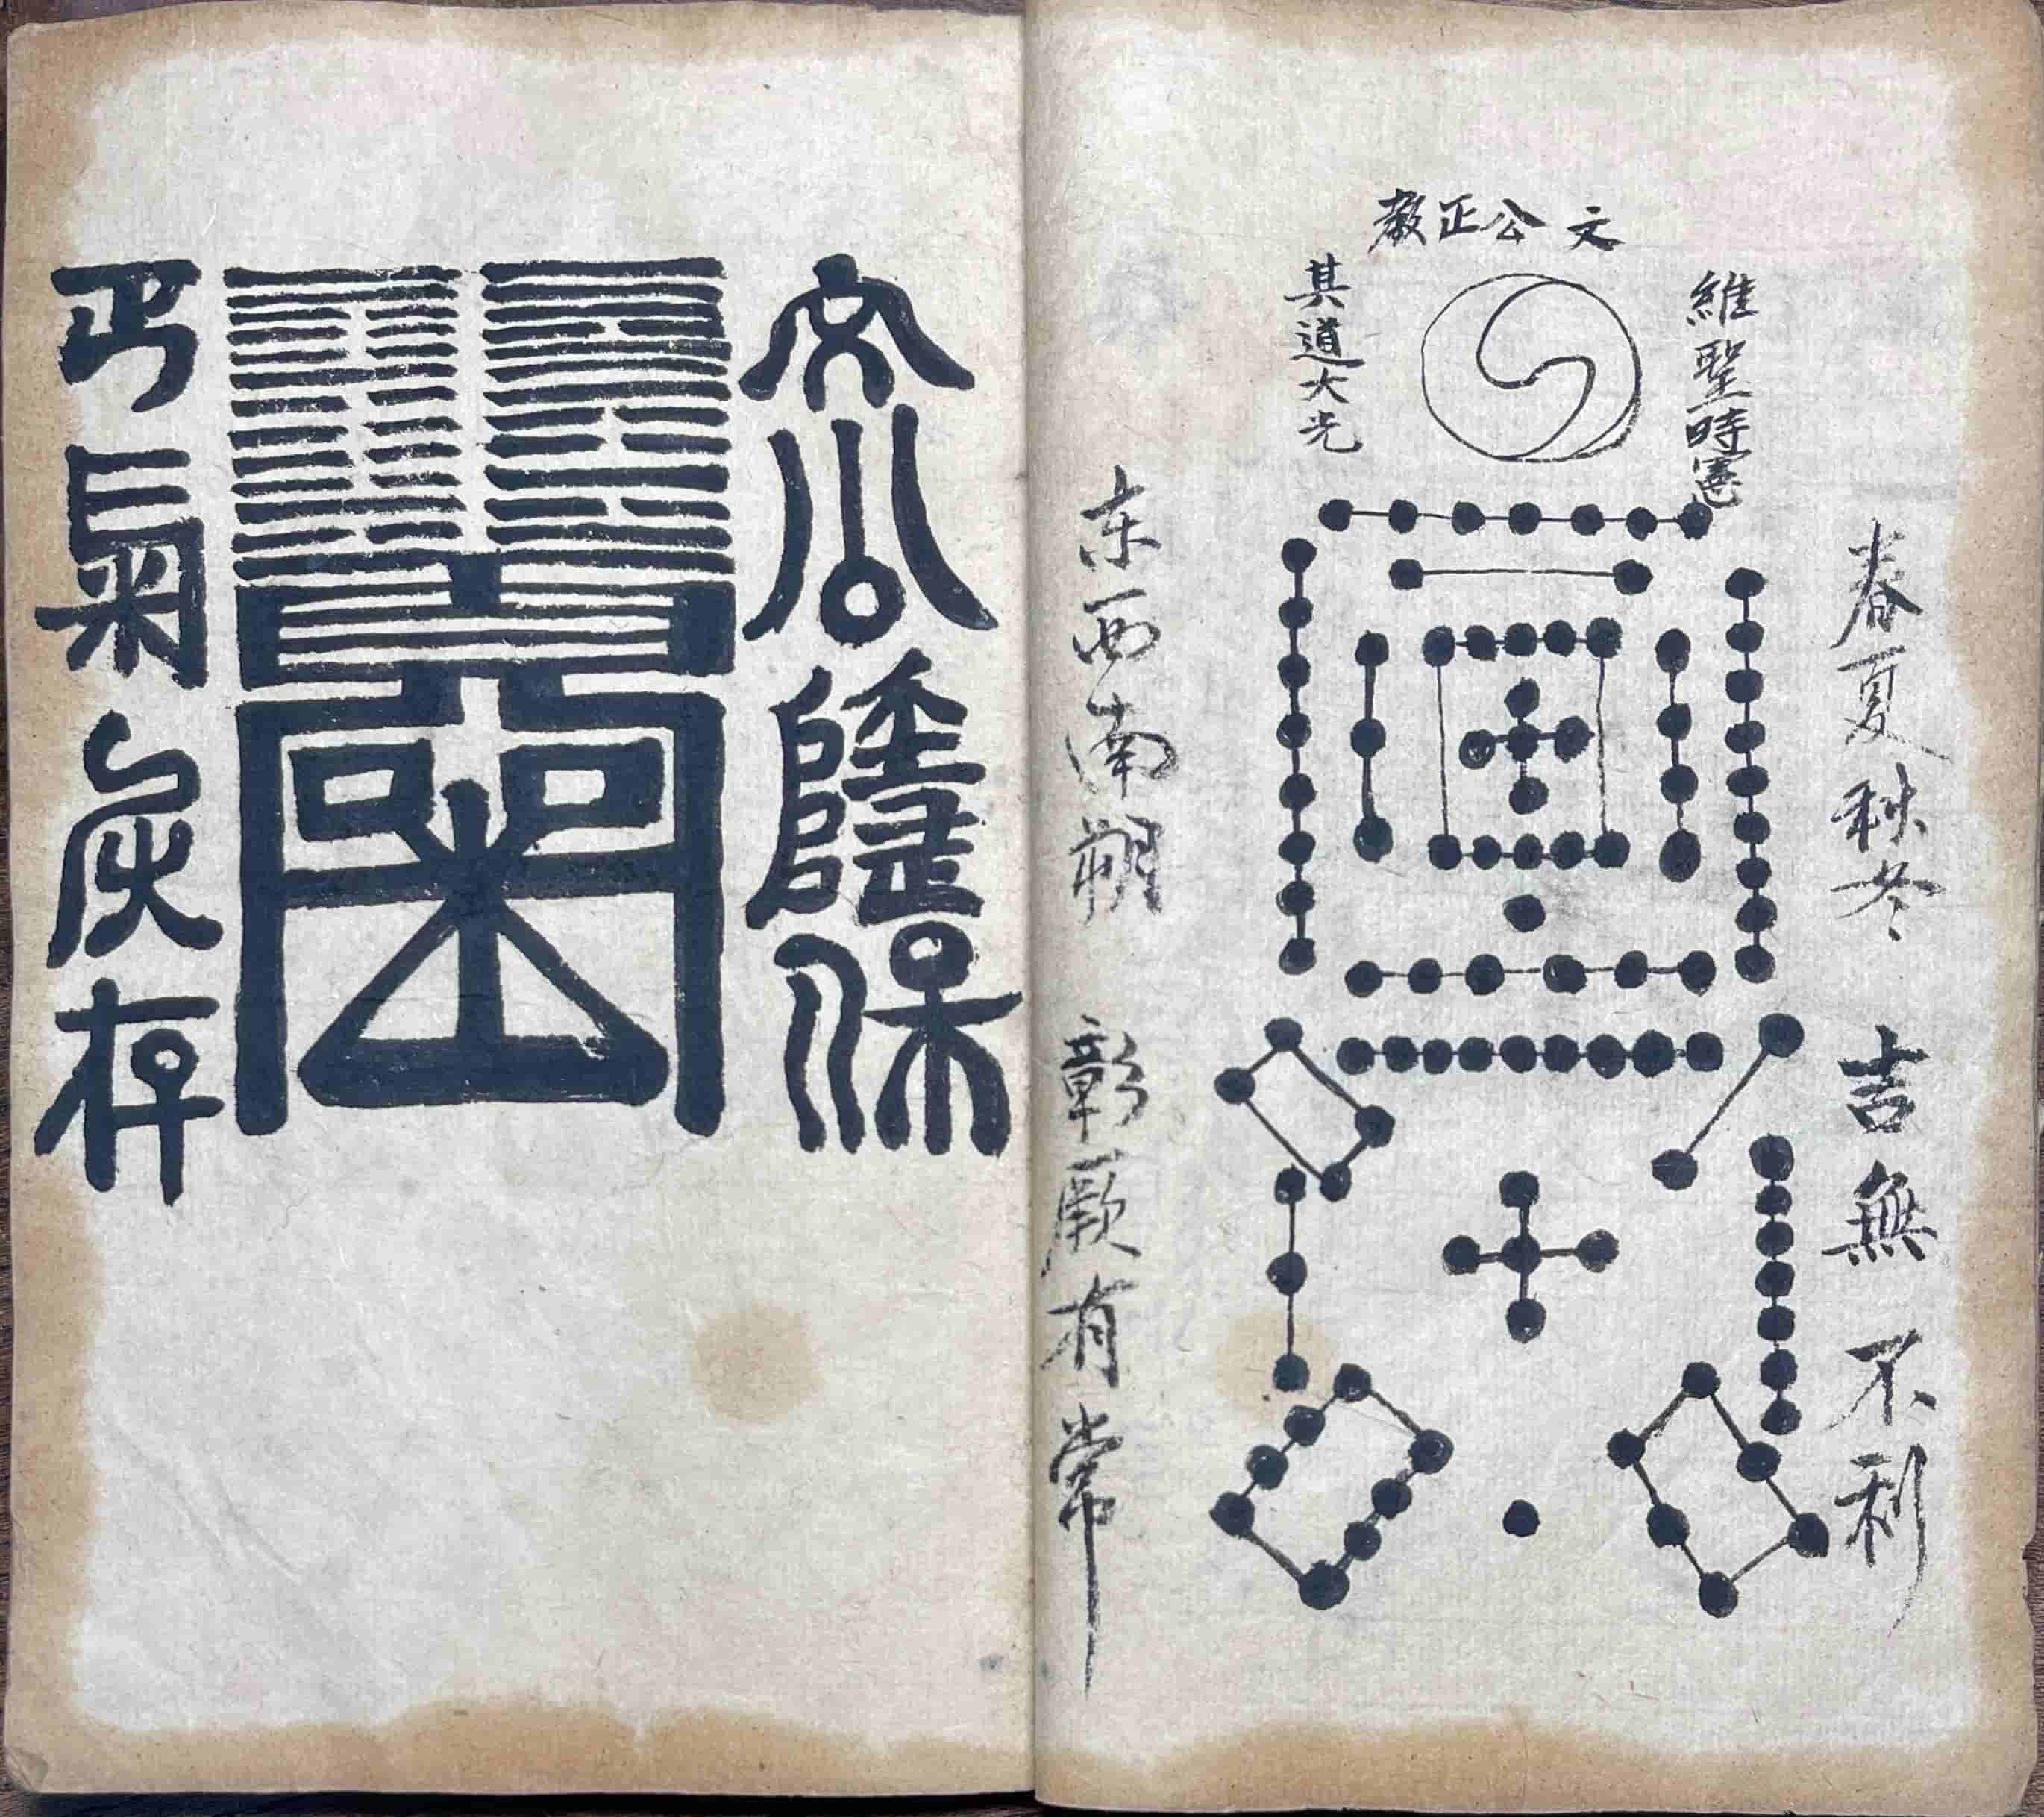 文公正教
維聖時憲
其道大光
春夏秋冬 吉無不利
东西南朔 彰厥有常
文公
保
氣炁存